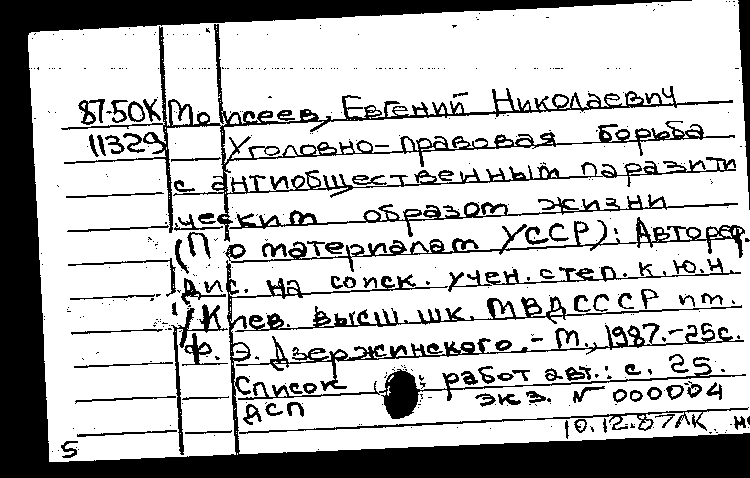 87-50К Моисеев, Евгений Николаевич
11329 Уголовно-правовая борьба
с антиобщественным паразити
ческим образом жизни
(По материалам УССР): Автореф.
дис. на соиск. учен. степ. к.ю.н.
/Киев. высш. шк. МВД СССР им.
Ф. Э. Дзержинского.- М., 1987.-25с.
Список работ авт.: с. 25.
ДСП экз. № 000004
10.12.87ЛК
5